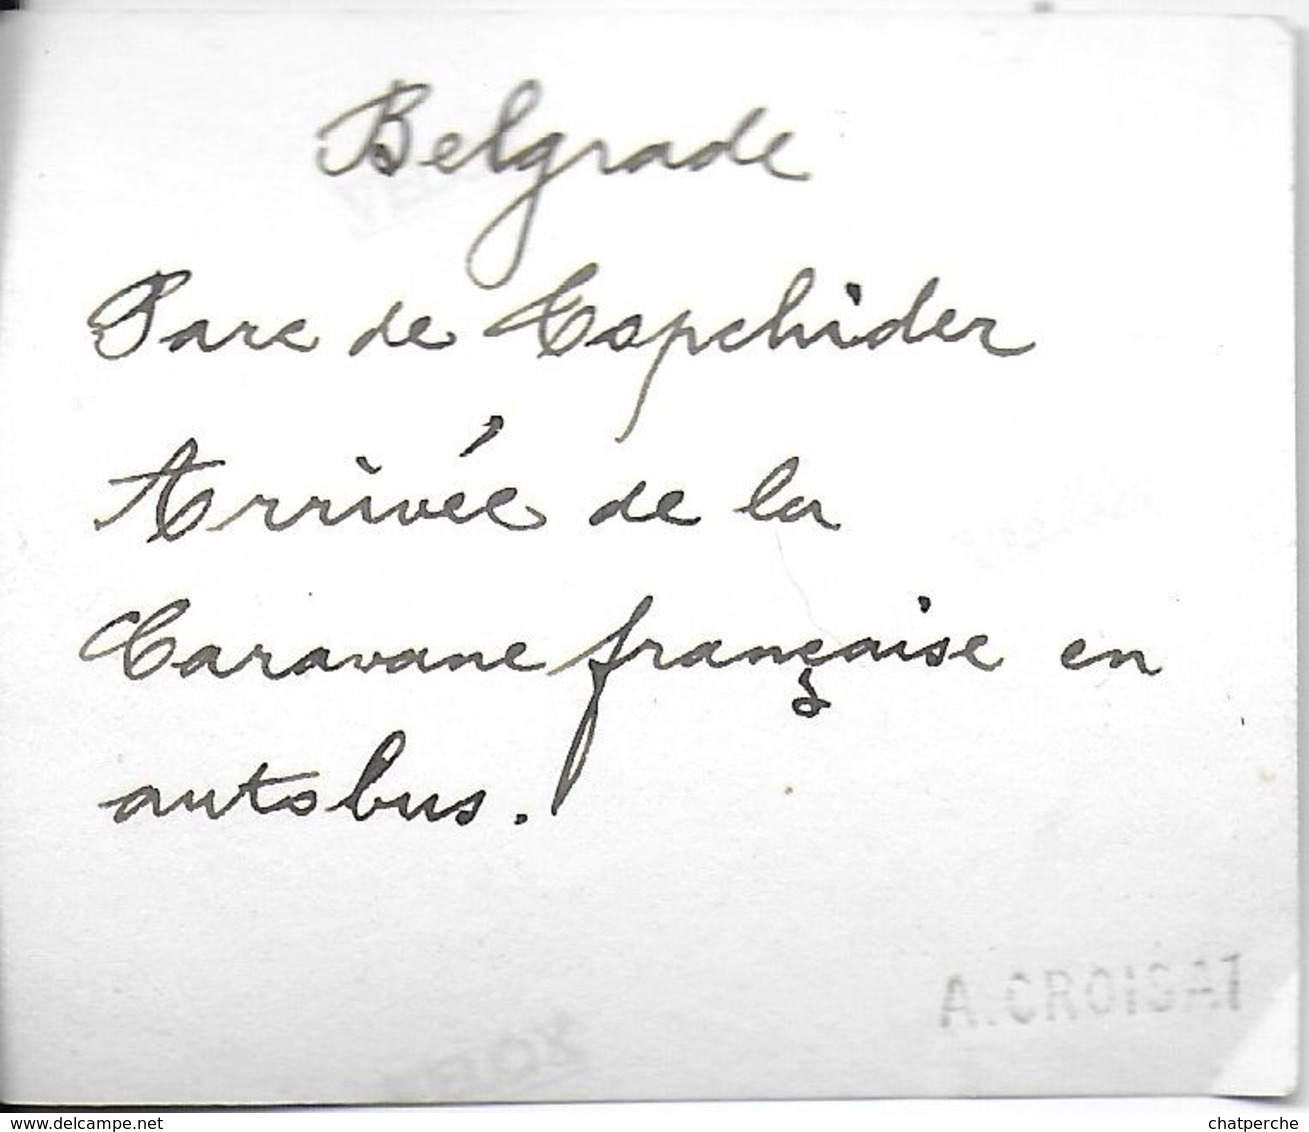 Belgrade
Parc de Topchider
Arrivée de la
Caravane française en
autobus.
A. CROISAT
www.delcampe.net
chatperche